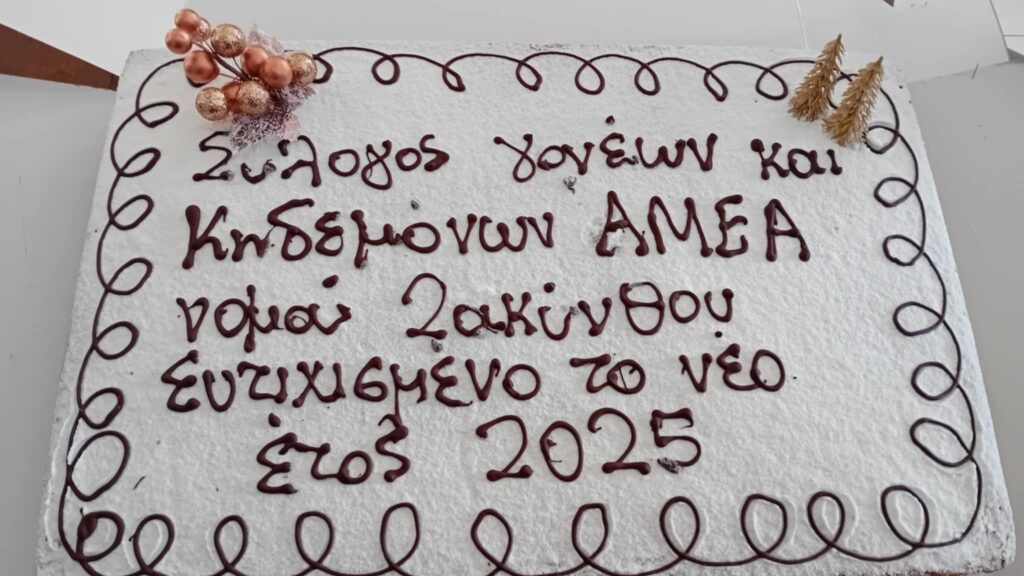 Σύλογος γονέων και
Κηδεμόνων ΑΜΕΑ
νομού Ζακύνθου
ευτιχισμένο το νέο
έτος 2025